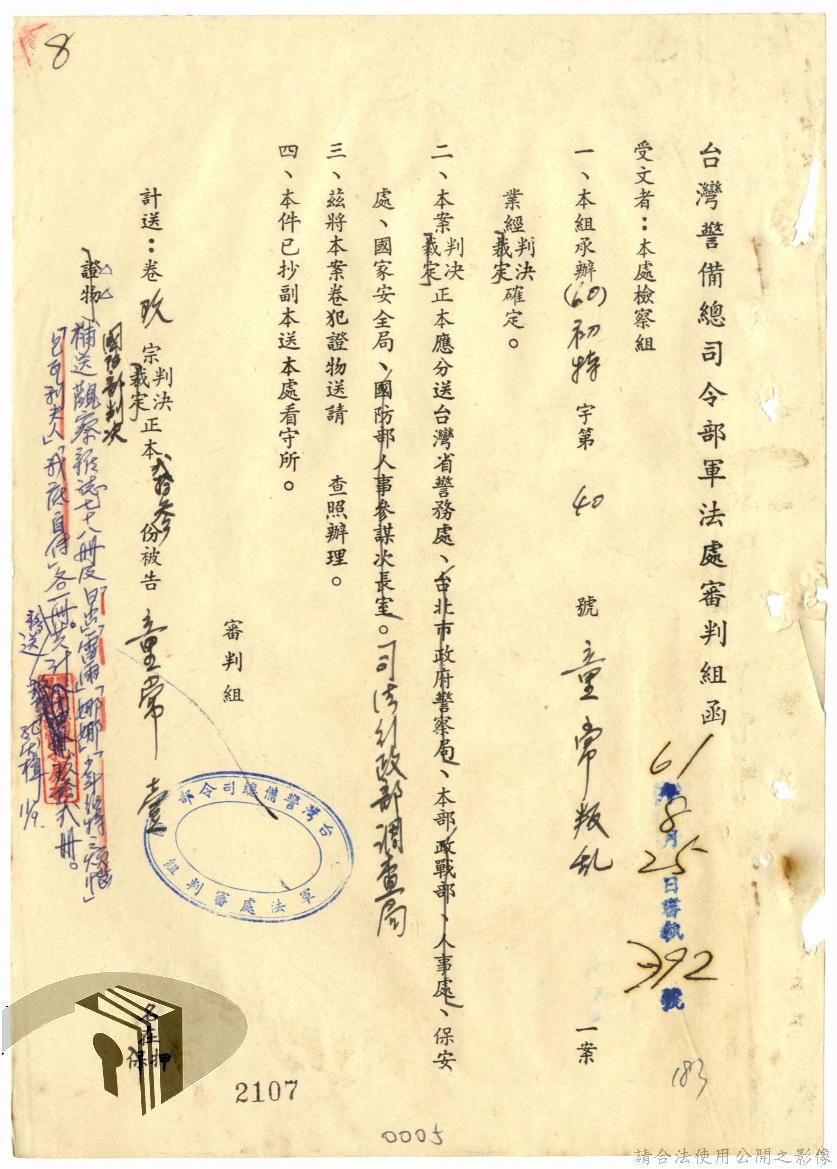 8
台灣警備總司令部軍法處審判組函
61年8月25日審執392號
受文者：本處檢察組
一、本組承辦(60)初特字第40號童常叛乱一案
業經判決裁定確定。
二、本案判決裁定正本應分送台灣省警務處、台北市政府警察局、本部政戰部、人事處、保安
處、國家安全局、國防部人事參謀次長室。司法行政部調查局
三、茲將本案卷犯證物送請　查照辦理。
四、本件已抄副本送本處看守所。
審判組
台灣警備總司令部
軍法處審判組
計送：卷玖宗判決裁定正本貳拾參份被告童常壹
國防部判決
證物
名在押保
補送觀察雜誌七十八冊及「日出」「雷雨」「娜娜」「少年維特之煩惱」
「包法利夫人」「我底自傳」各一冊共計
2107
0005
183
請合法使用公開之影像